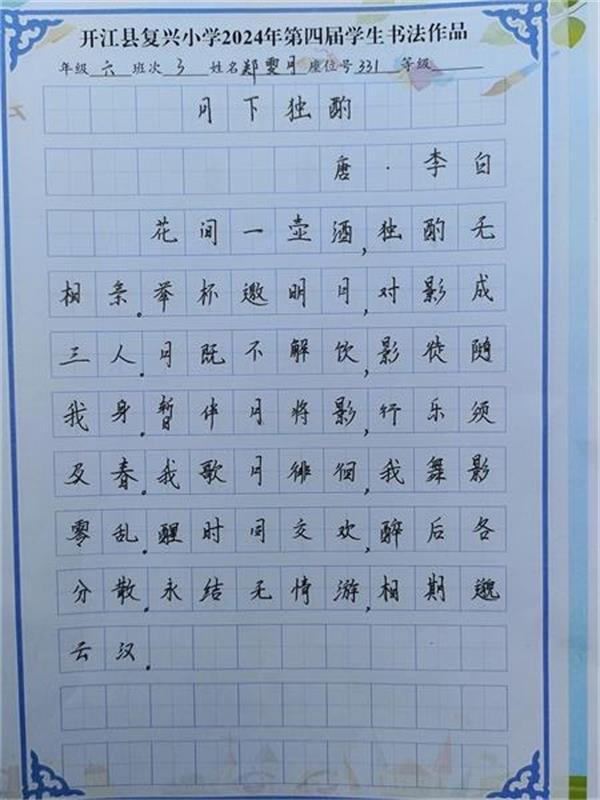 开江县复兴小学2024年第四届学生书法作品
年级 六 班次 3 姓名 郑雯月 座位号 331 等级
月下独酌
唐·李白
花间一壶酒,独酌无
相亲.举杯邀明月,对影成
三人.月既不解饮,影徒随
我身.暂伴月将影,行乐须
及春.我歌月徘徊,我舞影
零乱.醒时同交欢,醉后各
分散.永结无情游,相期邈
云汉.